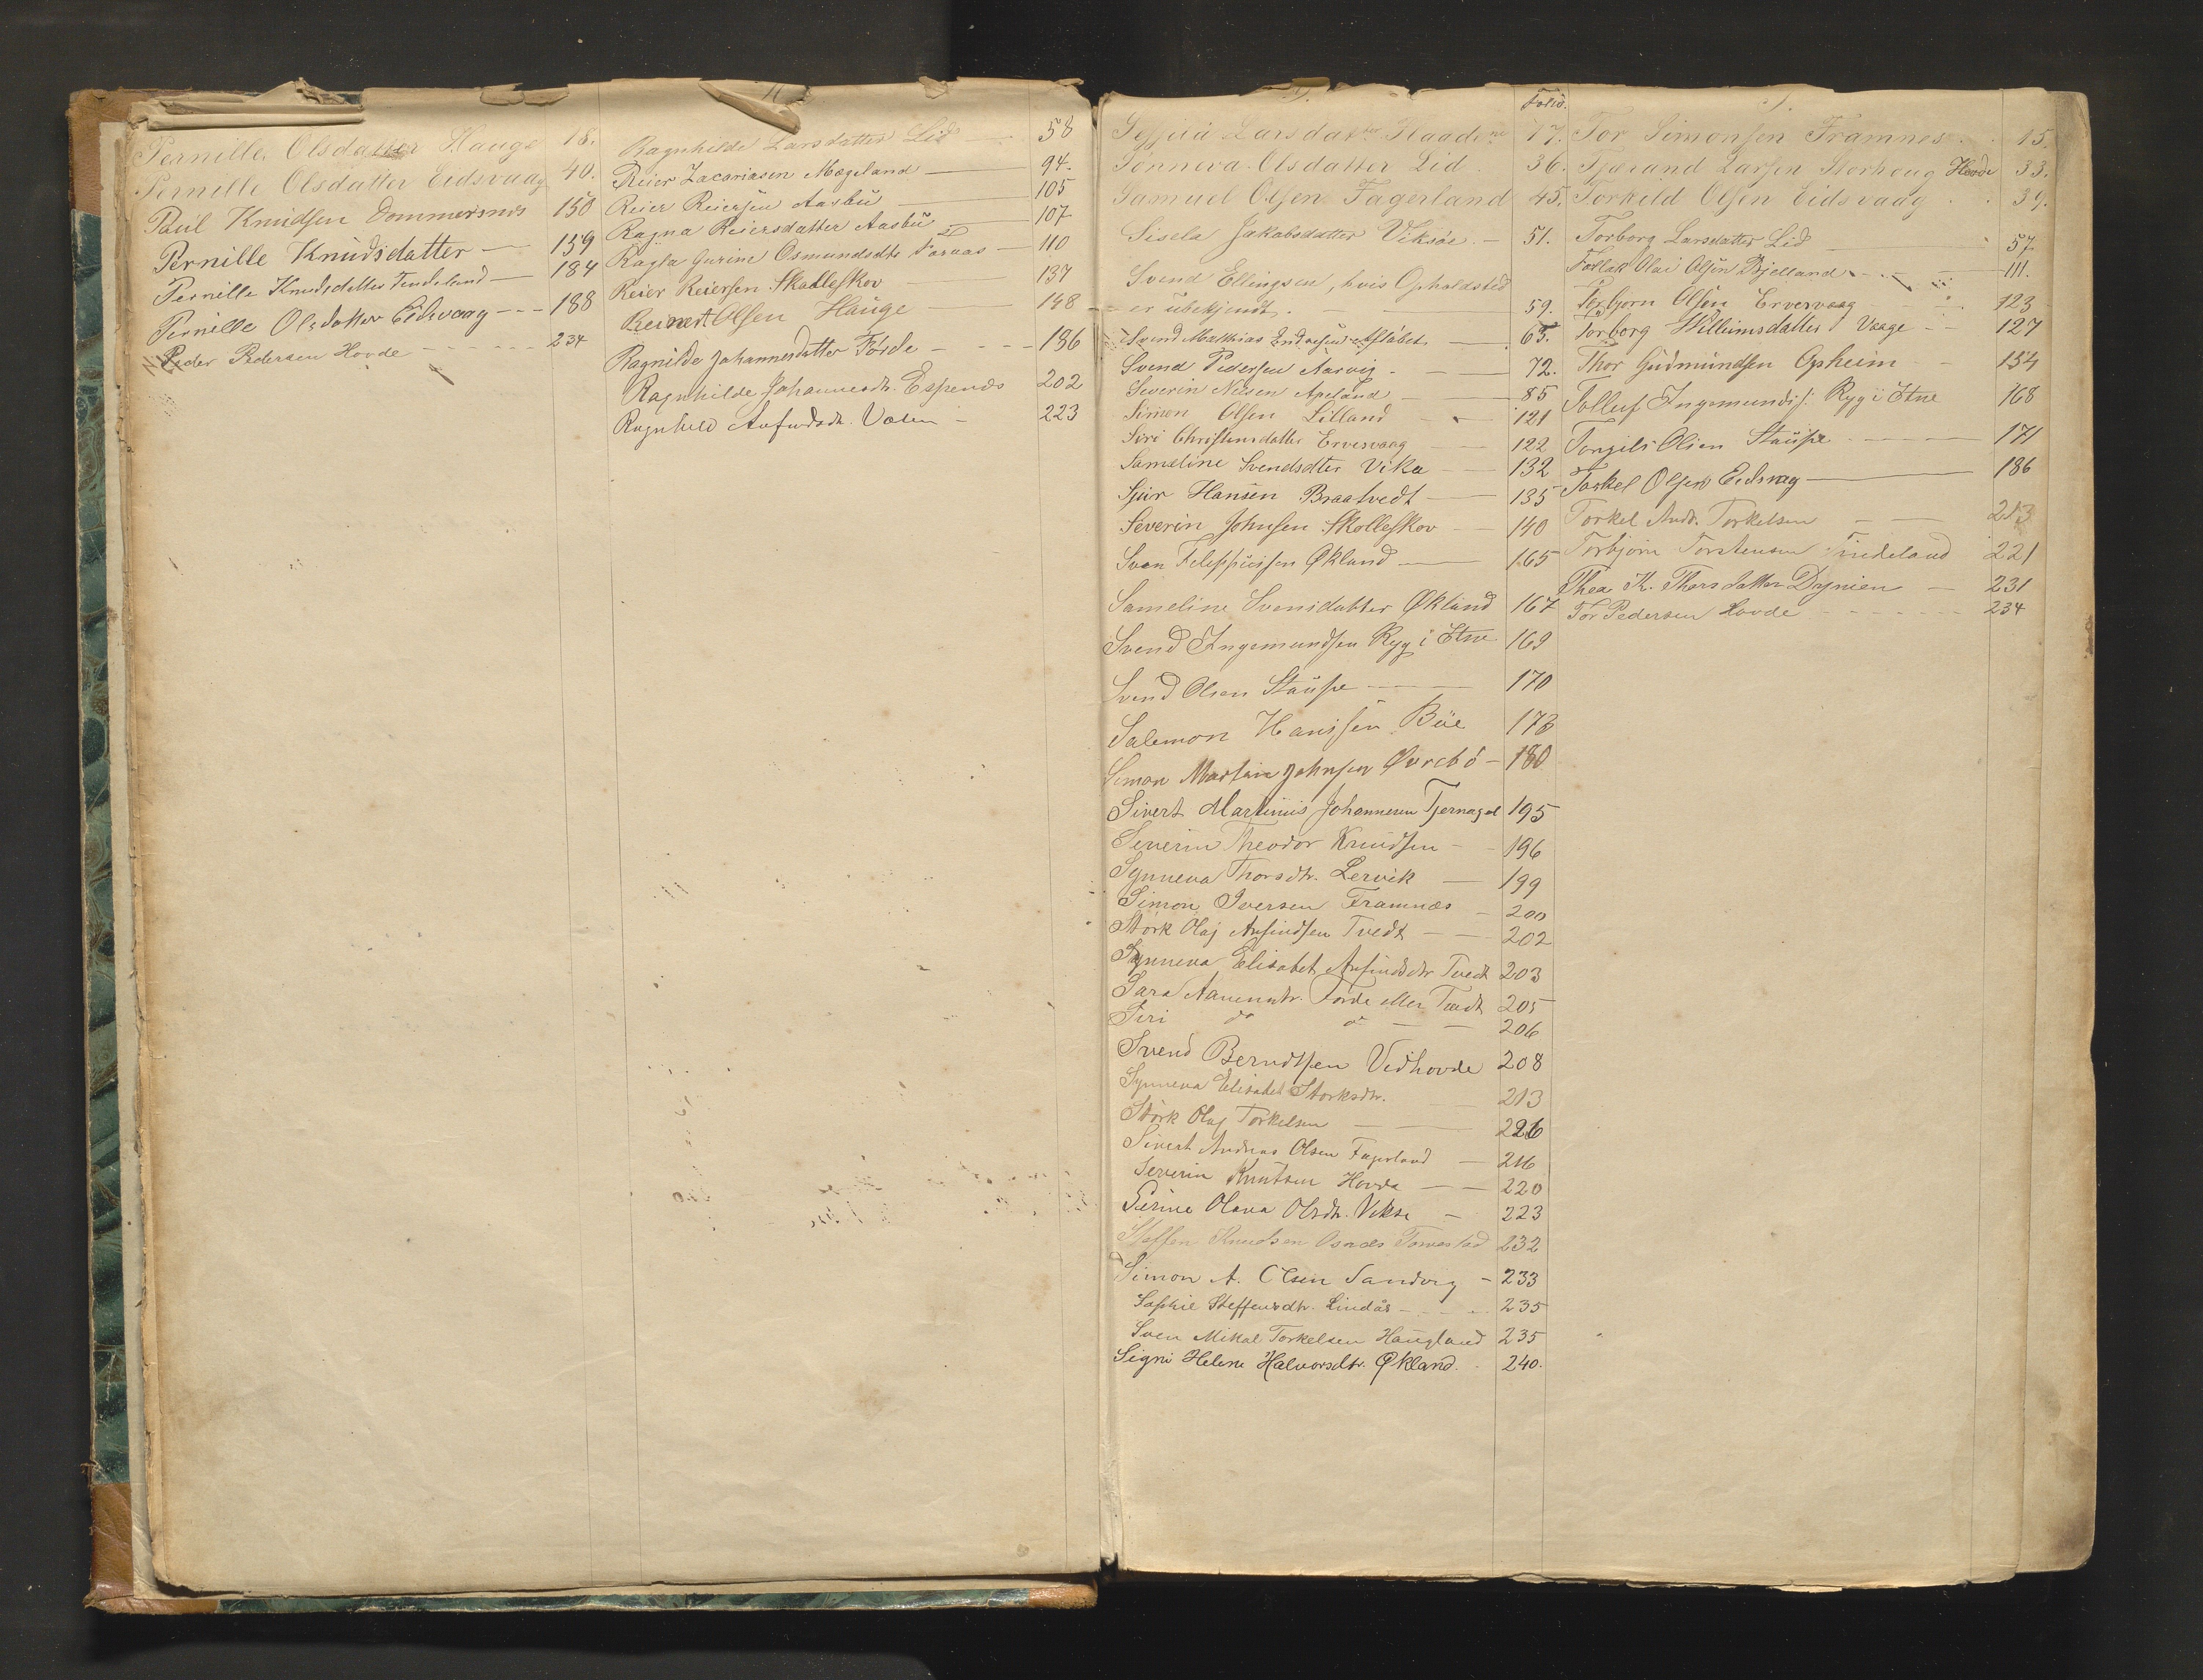 Pernille Olsdatter Hauge 18.
Pernille Olsdatter Eidsvaag 40.
Paul Knudsen Dommersnes 150
Pernille Knudsdatter — 159
Pernille Knudsdatter Tindeland — 184
Pernille Olsdatter Eidsvaag - - - 188
Peder Pedersen Hovde - - - - - - 234
R
Ragnhilde Larsdatter Lid — 58
Reier Zacariasen Mægeland — 94.
Reier Reiersen Aasbü — 105
Ragna Reiersdatter Aasbü 107
Ragla Gurine Osmundsdtr — 110
Reier Reiersen Skalleskov 137
Reinert Olsen Hauge — 148
Ragnilde Johannesdatter Førde - - - - 186
Ragnhilde Johannesdtr. Espenes 202
Ragnhild Anfindsdr. Valen - 223
S.
Folio.
Larsdatter 17.
Sønneva Olsdatter Lid 36.
Samuel Olsen Fagerland 45.
Sisela Jakobsdatter Viksøe. - 51.
Svend Ellingsen, hvis Opholdsted
er übekjendt. - 59.
Svend Mathias Endresen — 65.
Svend Pedersen Aarvig. — 72.
Severin Nilsen Apeland — 85
Simon Olsen Lilland - 121
Siri Christensdatter Ervesvaag — 122
Sameline Svendsdter Vika — 132
Sjur Hansen Braatvedt — 135
Severin Johnsen Skolleskov — 140
Sven Filippüssen Økland — 165
Sameline Svensdatter Økland 167
Svend Ingemundsen Ryg i Etne 169
Svend Olsen Staüpe — 170
Salemon Hanssen Büe 178
Simon Martin Johnsen Øvrebö - 180
Sivert Martinius Johannesen Tjernagel 195
Severin Theodor Knudsen - - 196
Synneva Thorsdtr. Lervik — 199
Simon Iversen Framnæs - 200
Störk Olaj Anfindsen Tvedt — — 202
Synneva Elisabet Anfindsdtr Tvedt 203
Sara Aanensdtr. Förde eller Tvedt 205
Siri do do — — 206
Svend Berndtsen Vidhovde 208
Synneva Elisabet Storksdtr. 213
Störk Olaj Torkelsen — — 226
Sivert Andreas Olsen Fagerland — 216
Severin Knutsen Hovda — — 220
Serine Olava Olsdtr. Vikse — 223
Steffen Knudsen Osnæs 232
Simon A. Olsen Sandvig - 233
Sophie Steffensdtr. Lindås - - - - 235
Sven Mikal Torkelsen Haugland 235
Signi Helene Halvorsdtr. Økland. . 240.
T.
Tor Simonsen Framnes. . 15.
Tjærand Larsen Storhoug Hovde 33.
Torkild Olsen Eidsvaag . . 39.
Torborg Larsdatter Lid — 57
Tollak Olai Olsen Bjelland - - - 111.
Torbjørn Olsen Ervesvaag 123
Torborg Willumsdatter Vaage - - 127
Thor Gudmundsen Opheim - 154
Tolluf Ingemunds: Ryg i Etne 168
Torgils Olsen Staüpe — 171
Torkel Olsen Eidsvaag — 186
Torkel Andr. Torkelsen — — 213
Torbjørn Torstensen Tindeland 221
Thea K. Thorsdatter — 231
Tor Pedersen Hovde - - - - - - 234